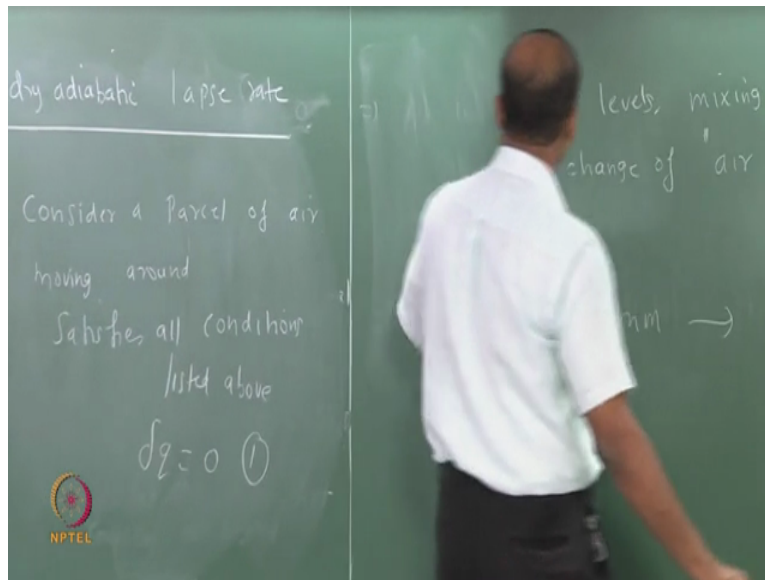 dry adiabatic lapse rate
Consider a Parcel of air
moving around
Satisfies all conditions
listed above
δq = 0 ①
levels, mixing
change of air
mm →
NPTEL